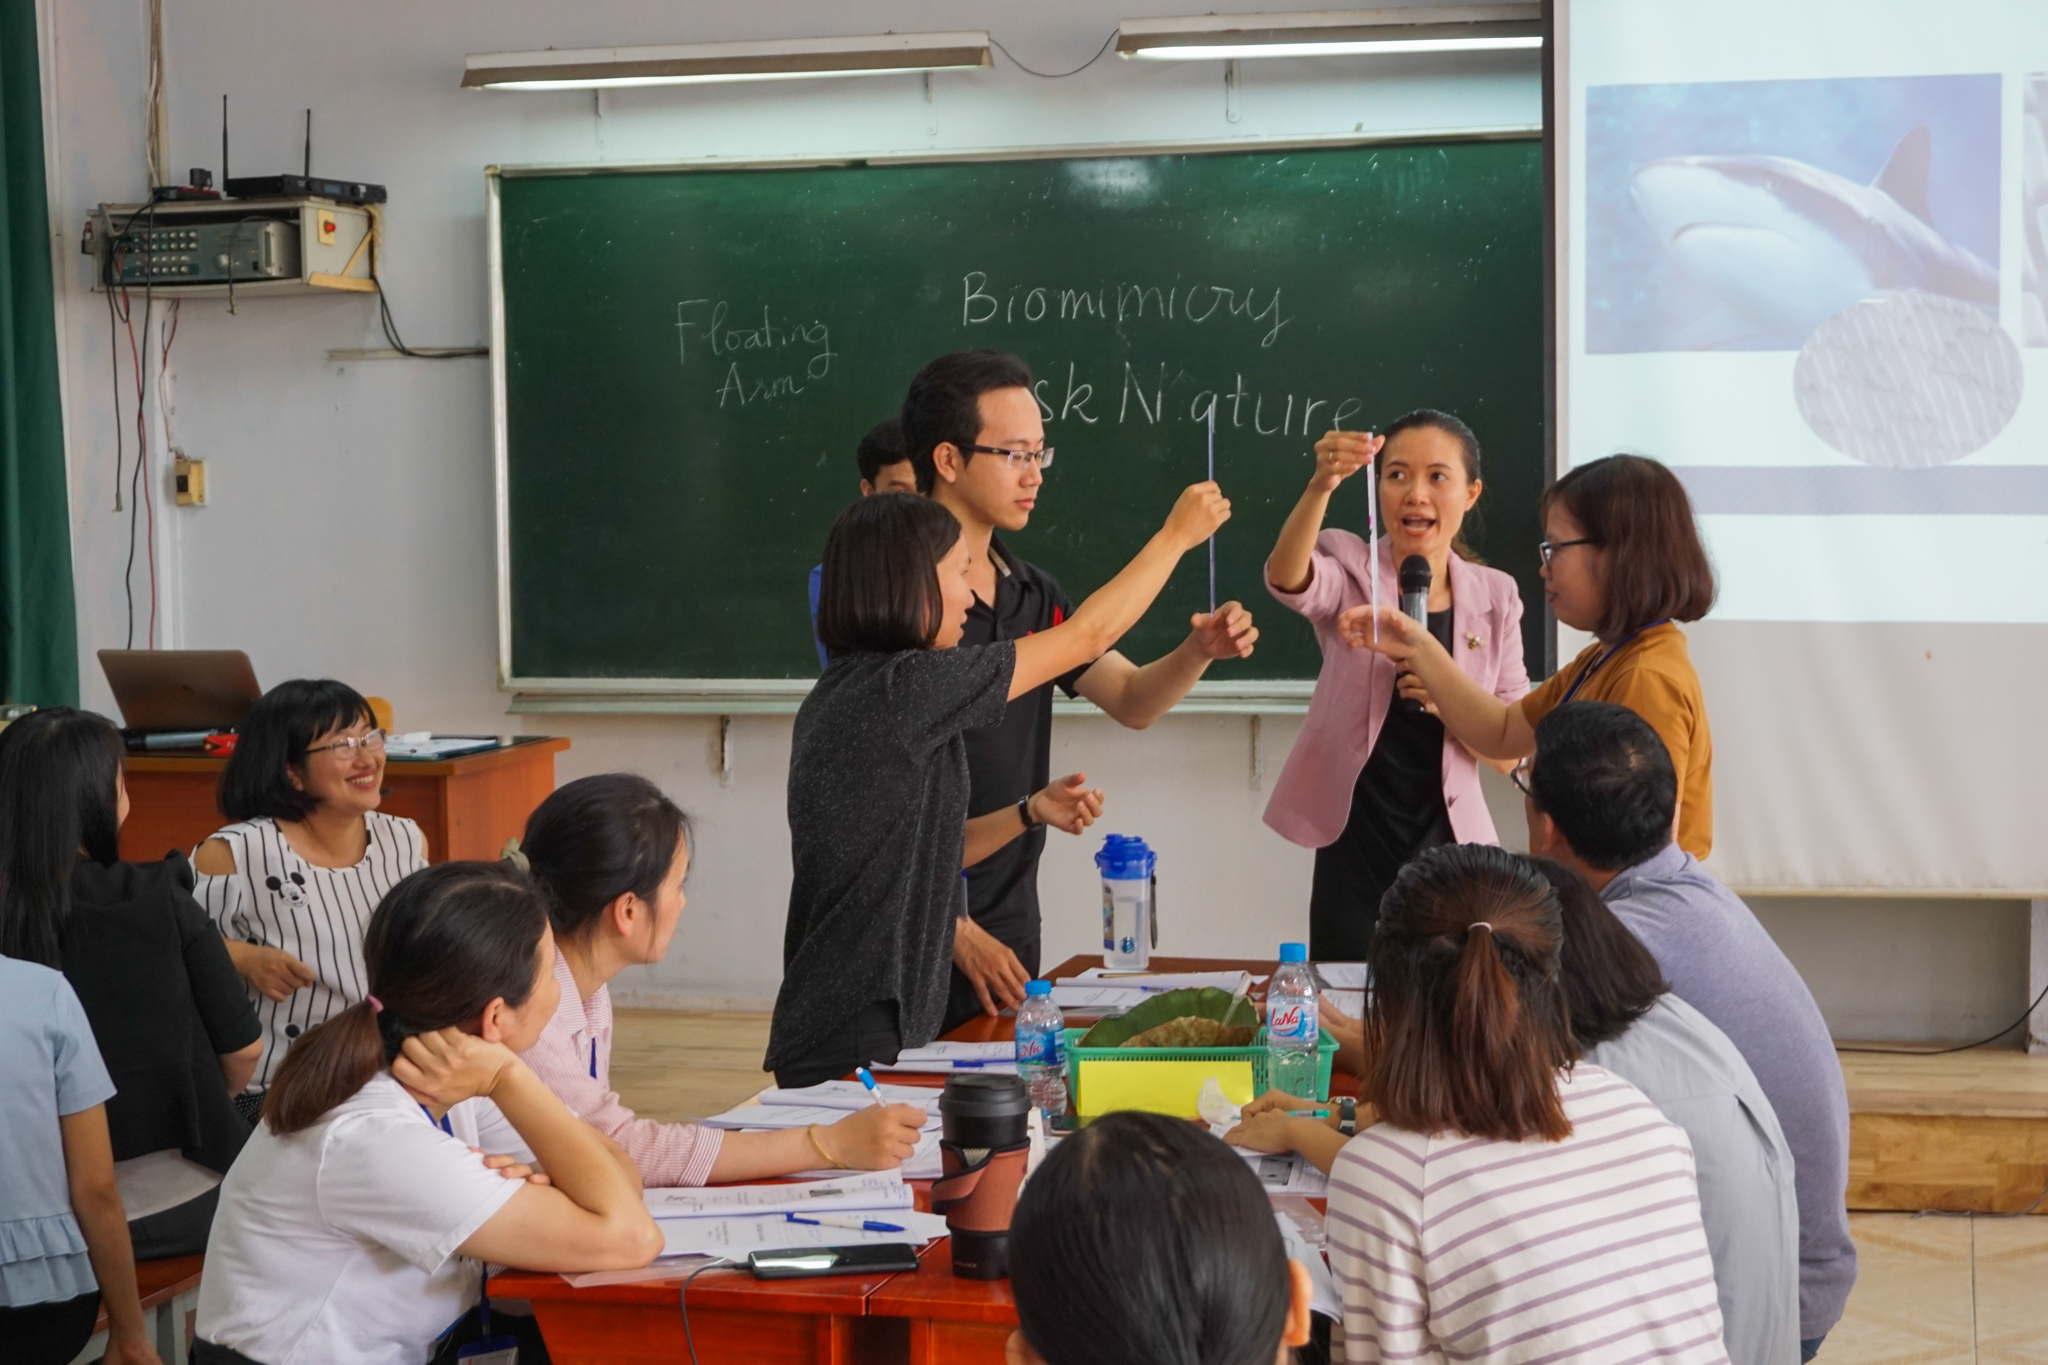 Floating
Arm
Biomimicry
sk Nature
LaNa